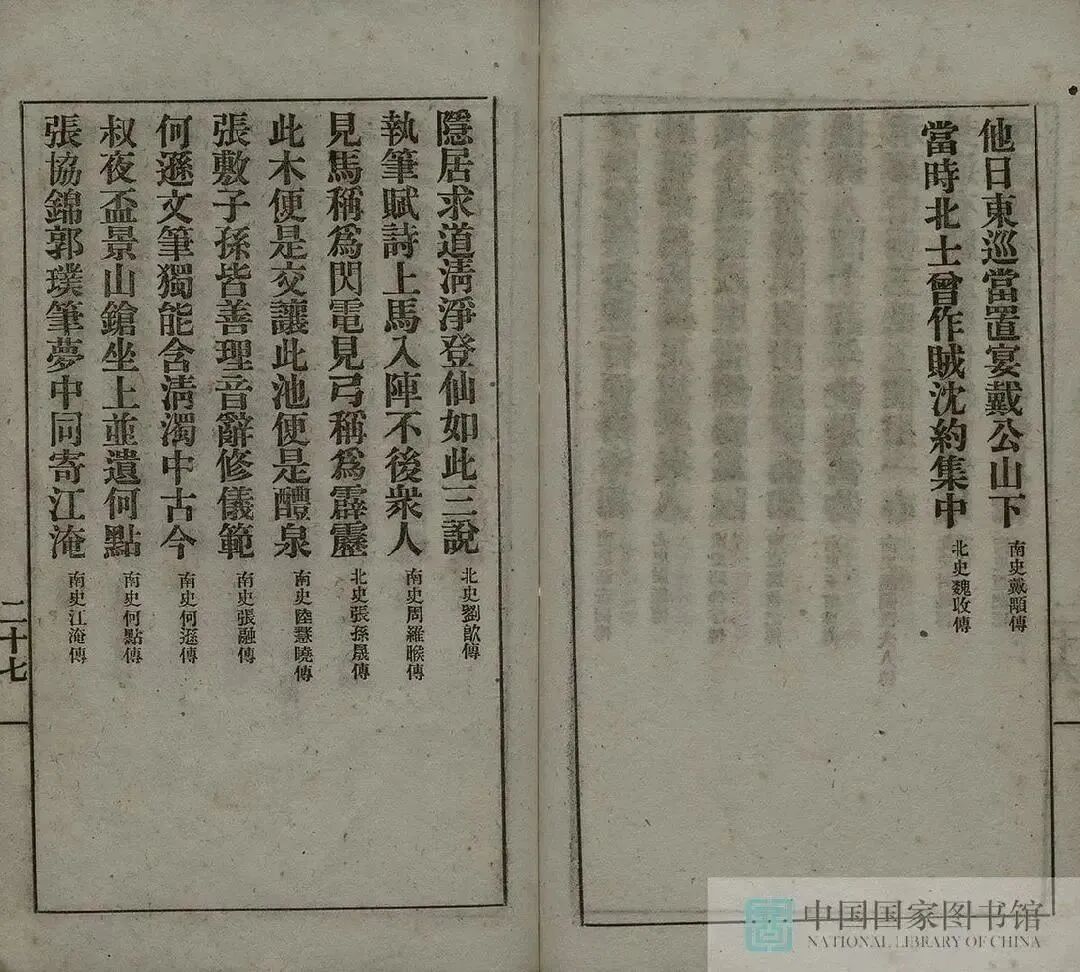 他日東巡當置宴戴公山下 南史戴顒傳
當時北士曾作賊沈約集中 北史魏收傳
隱居求道清淨登仙如此三說 北史劉歊傳
執筆賦詩上馬入陣不後衆人 南史周羅睺傳
見馬稱爲閃電見弓稱爲霹靂 北史張孫晟傳
此木便是交讓此池便是醴泉 南史陸慧曉傳
張敷子孫皆善理音辭修儀範 南史張融傳
何遜文筆獨能含淸濁中古今 南史何遜傳
叔夜盃景山鎗坐上並遺何點 南史何點傳
張協錦郭璞筆夢中同寄江淹 南史江淹傳
二十七
中国国家图书馆
NATIONAL LIBRARY OF CHINA